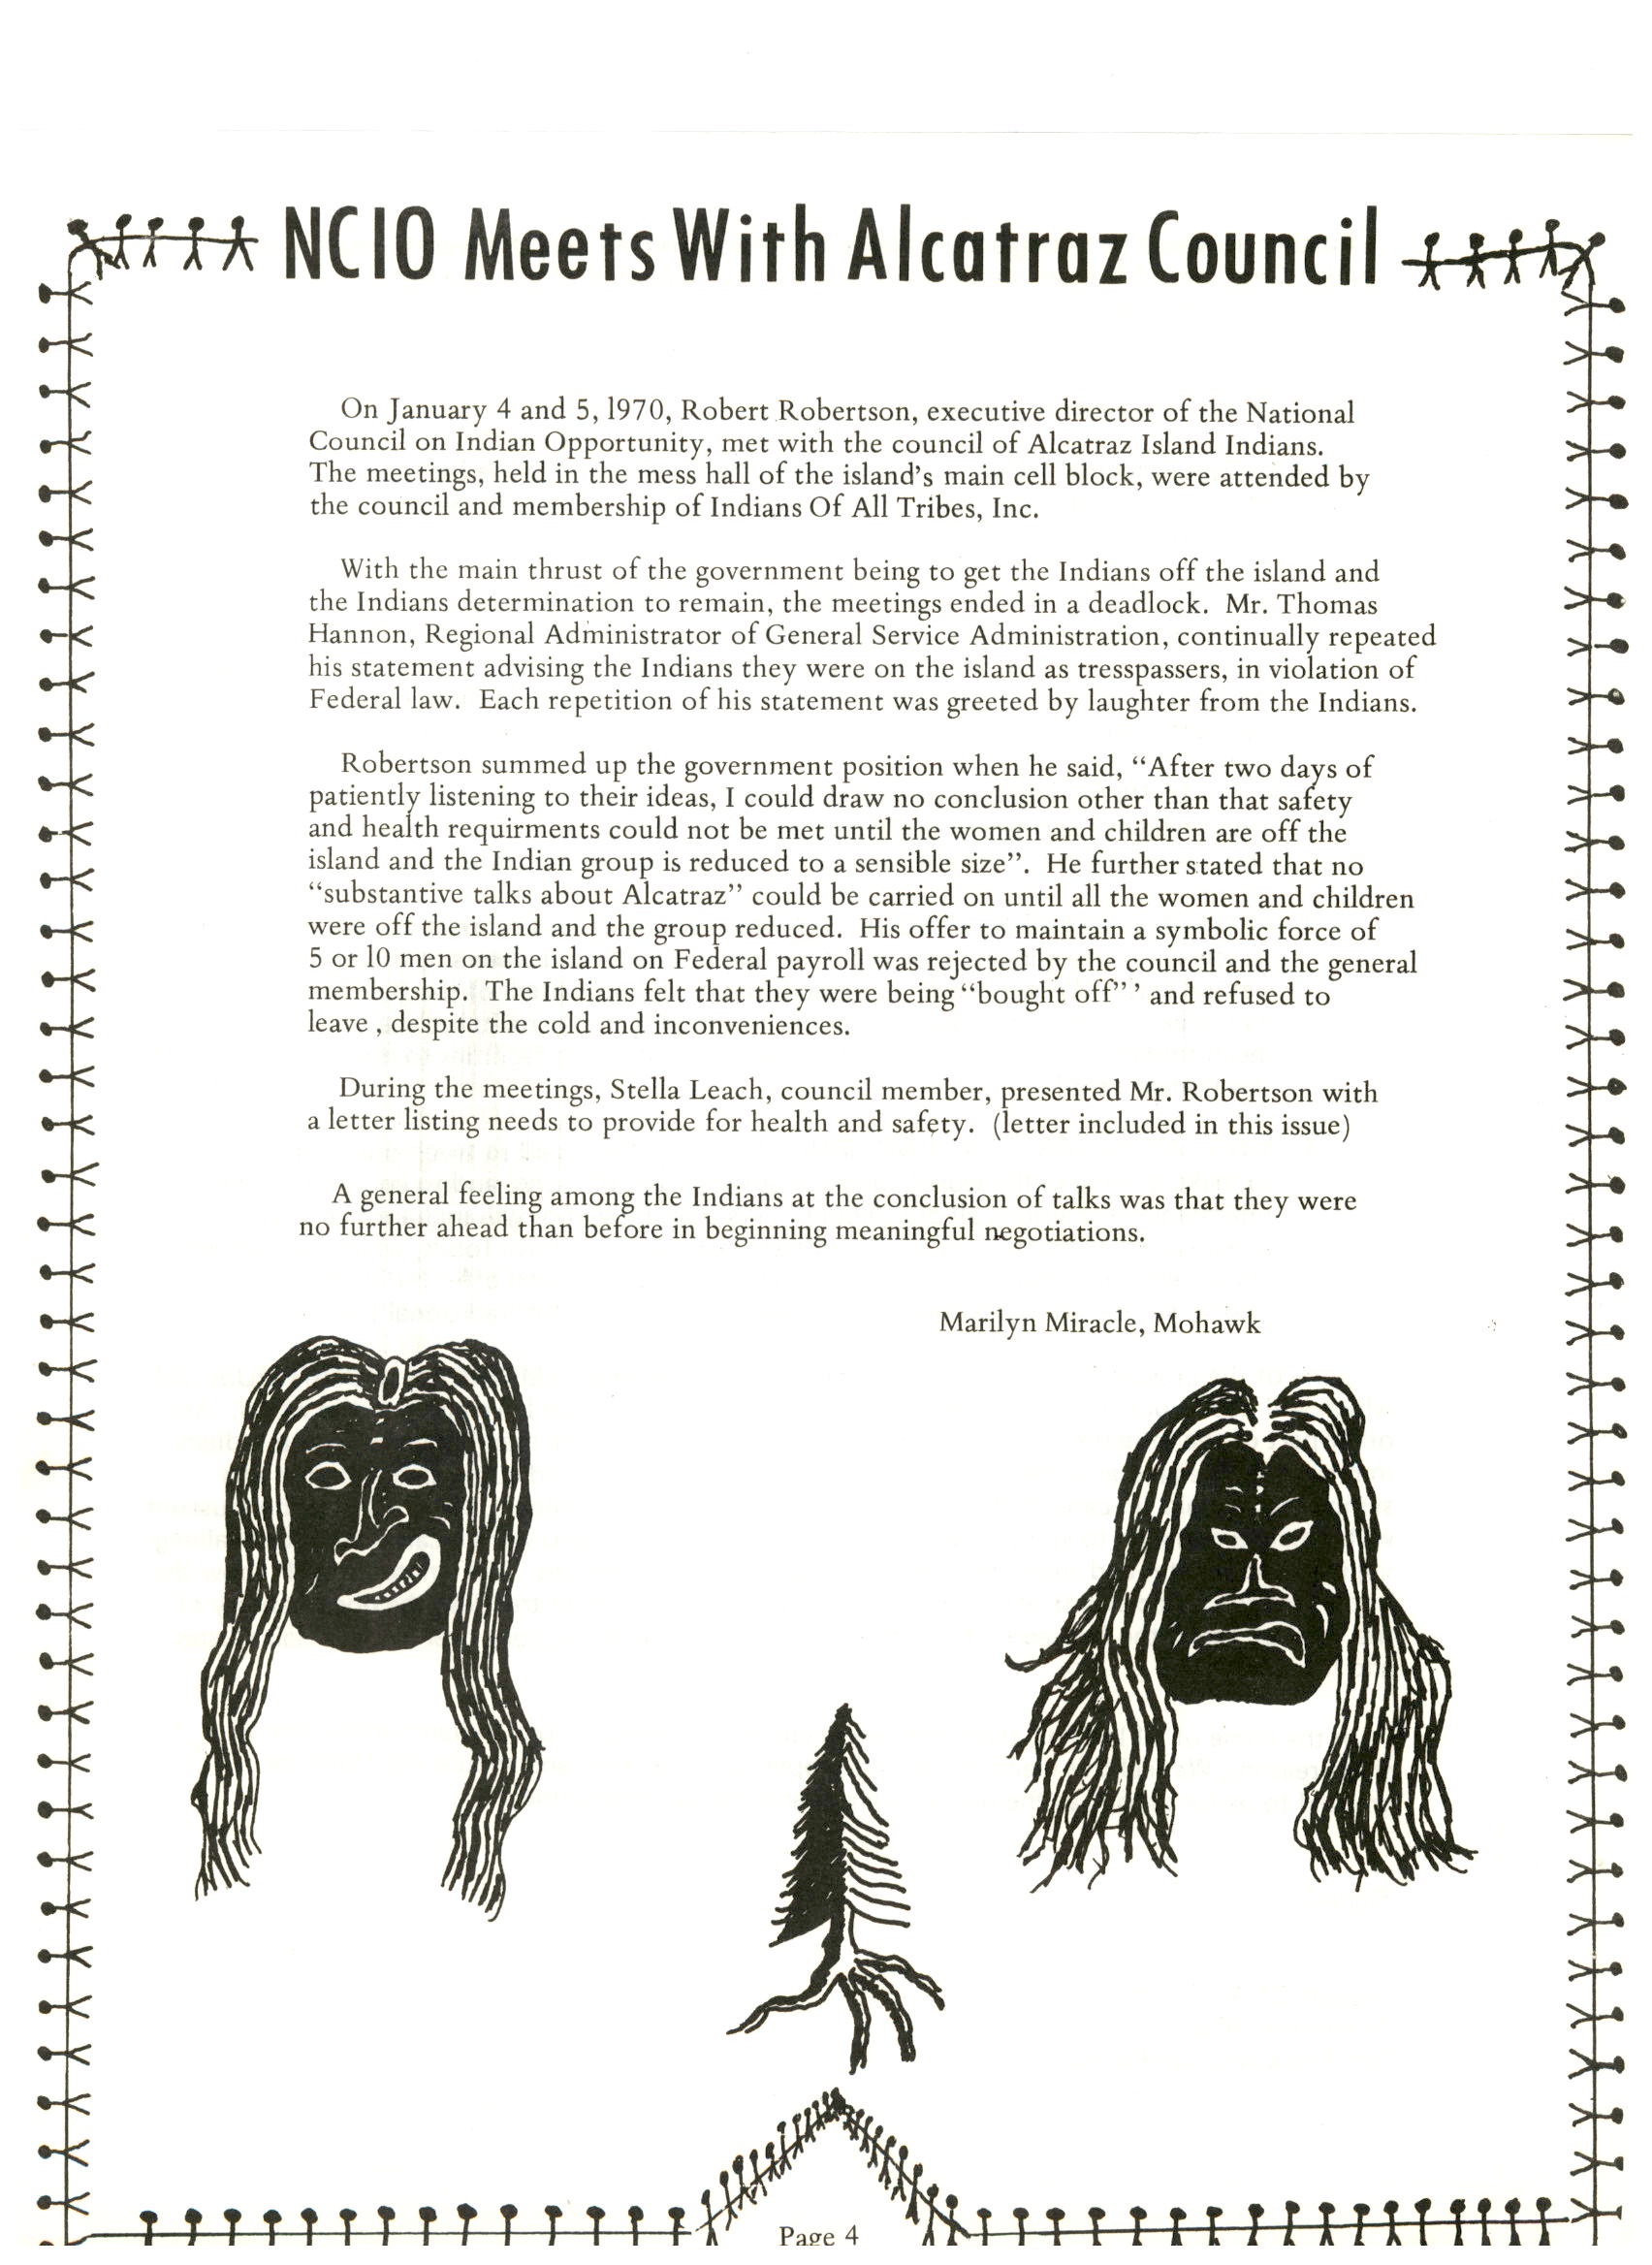 NCIO Meets With Alcatraz Council
On January 4 and 5, 1970, Robert Robertson, executive director of the National
Council on Indian Opportunity, met with the council of Alcatraz Island Indians.
The meetings, held in the mess hall of the island's main cell block, were attended by
the council and membership of Indians Of All Tribes, Inc.
With the main thrust of the government being to get the Indians off the island and
the Indians determination to remain, the meetings ended in a deadlock. Mr. Thomas
Hannon, Regional Administrator of General Service Administration, continually repeated
his statement advising the Indians they were on the island as tresspassers, in violation of
Federal law. Each repetition of his statement was greeted by laughter from the Indians.
Robertson summed up the government position when he said, “After two days of
patiently listening to their ideas, I could draw no conclusion other than that safety
and health requirments could not be met until the women and children are off the
island and the Indian group is reduced to a sensible size”. He further stated that no
“substantive talks about Alcatraz” could be carried on until all the women and children
were off the island and the group reduced. His offer to maintain a symbolic force of
5 or 10 men on the island on Federal payroll was rejected by the council and the general
membership. The Indians felt that they were being “bought off” ’ and refused to
leave , despite the cold and inconveniences.
During the meetings, Stella Leach, council member, presented Mr. Robertson with
a letter listing needs to provide for health and safety. (letter included in this issue)
A general feeling among the Indians at the conclusion of talks was that they were
no further ahead than before in beginning meaningful negotiations.
Marilyn Miracle, Mohawk
Page 4